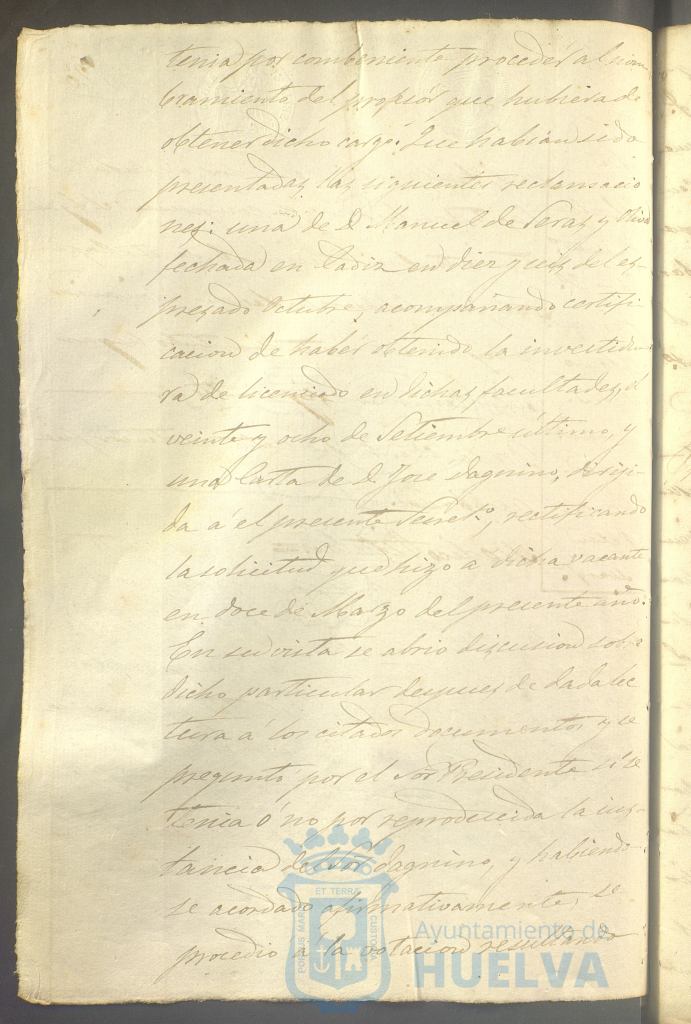 tenia por combeniente proceder al nom
bramiento del profesor que hubiera de
obtener dicho cargo. Que habian sido
presentadas las siguientes reclamacio
nes: una de D. Manuel de Peraz y
fechada en Cadiz en diez y seis del es
presado Octubre, acompañando certifi
cacion de haber obtenido la investidu
ra de licenciado en dichas facultades, á
veinte y ocho de Setiembre último, y
una Carta de D. José Dagnino, diriji
da á el presente Secret.º, rectificando
la solicitud que hizo a dicha vacante
en doce de Marzo del presente año.
En su vista se abrio discusion sobre
dicho particular despues de dada lec
tura á los citados documentos y se
preguntó por el Sor Presidente si se
tenia ó no por reproducida la ins
tancia del Sor Dagnino, y habiendo
se acordado afirmativamente, se
procedio á la votacion resultando
PORTUS MARIS ET TERRA CUSTODIA
Ayuntamiento de
HUELVA